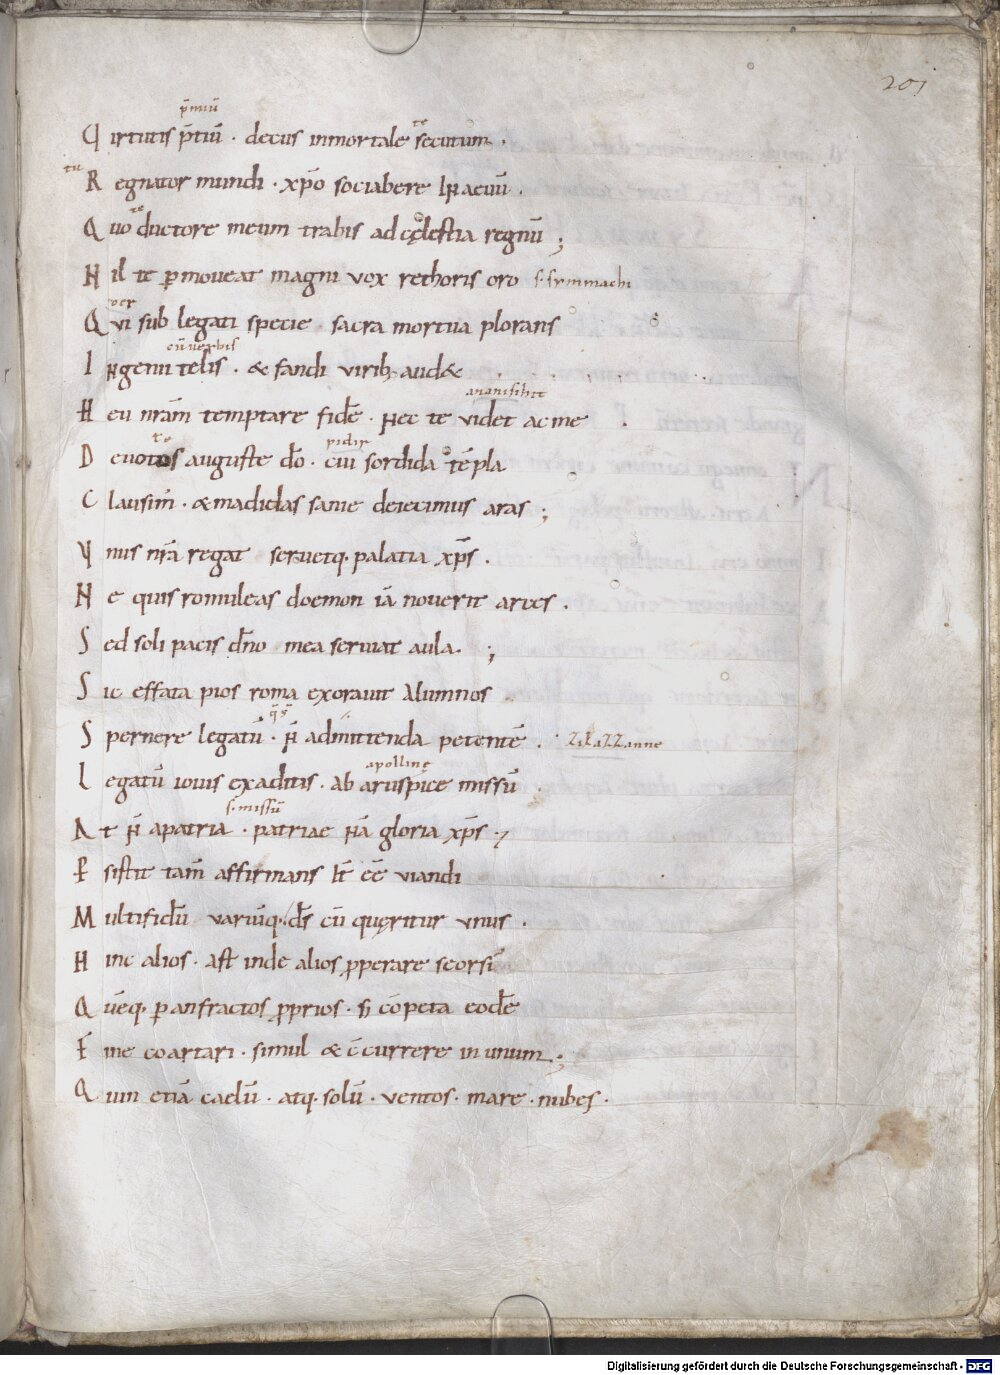 201
p̄miū
te
Virtutis p̄tiū · decus inmortale secutum ·
tu
Regnator mundi · xp̄o sociabere IN aevū ·
te
Quo ductore meum trahis ad cęlestia regnū ;
Nil te pmoveat magni vox rethoris oro s· symmachi
Qui sub legati specie sacra mortua plorans
cū verbis
INgenii telis · & fandi virib; aud&
Heu nr̄am temptare fidē · Nec te videt ac me
te
Devotos auguste do̅ · cui sordida tēpla
Clausim̄ · & madidas sanie deiecimus aras ;
Vnus nr̄a regat servetq· palatia xp̄s ·
Ne quis romuleas doemon iā noverit arces ·
Sed soli pacis dn̄o mea serviat aula · ;
Sic effata pios roma exoravit Alumnos
Spernere legatū · N̄ admittenda petentē · zizazzanne
apolline
Legatū iovis ex aditis · ab aruspice missū
s· missū
At N̄ a patria · patriae Nā gloria xp̄s ·
Psistit tam̄ affirmans It̄ eē viandi
Multifidū variūq· ds̄ cū quęritur vnus ·
Hinc alios · ast inde alios pperare seorsī
Quēq· p anfractos pprios · s; cōpeta eodē
Fine coartari · simul & c̄currere in unum ;
Quin etiā caelū · atq· solū · ventos · mare · nubes ·
Digitalisierung gefördert durch die Deutsche Forschungsgemeinschaft - DFG